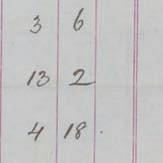 3 6
13 2
4 18.